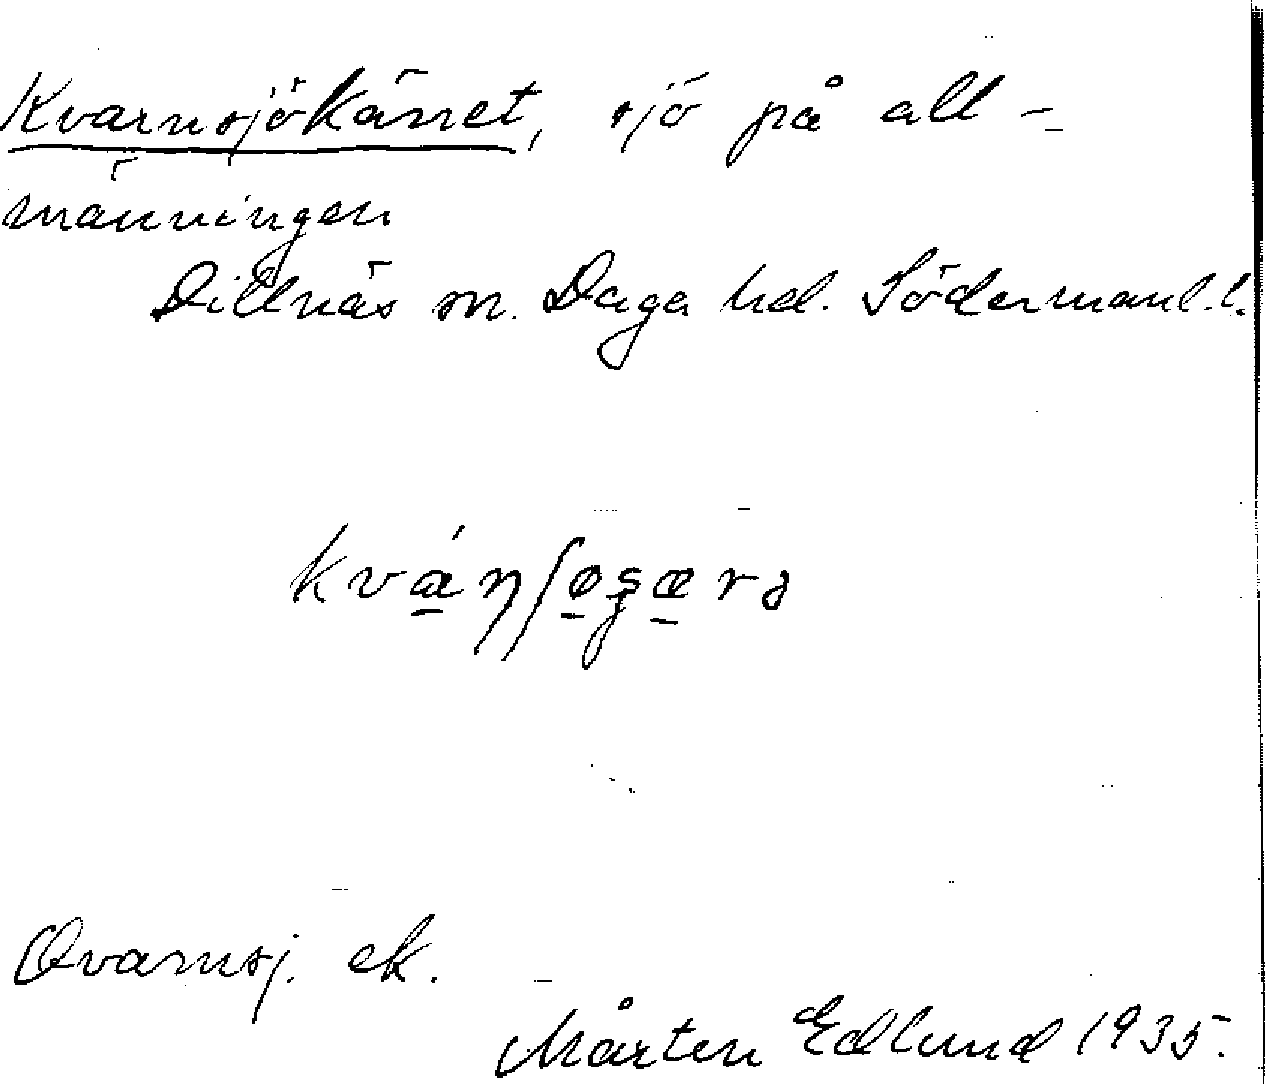 Kvarnsjökärret, sjö på all-
männingen
Dillnäs sn. Daga hd. Södermanl. l.
Qvarnsj. ek.
Mårten Edlund 1935.